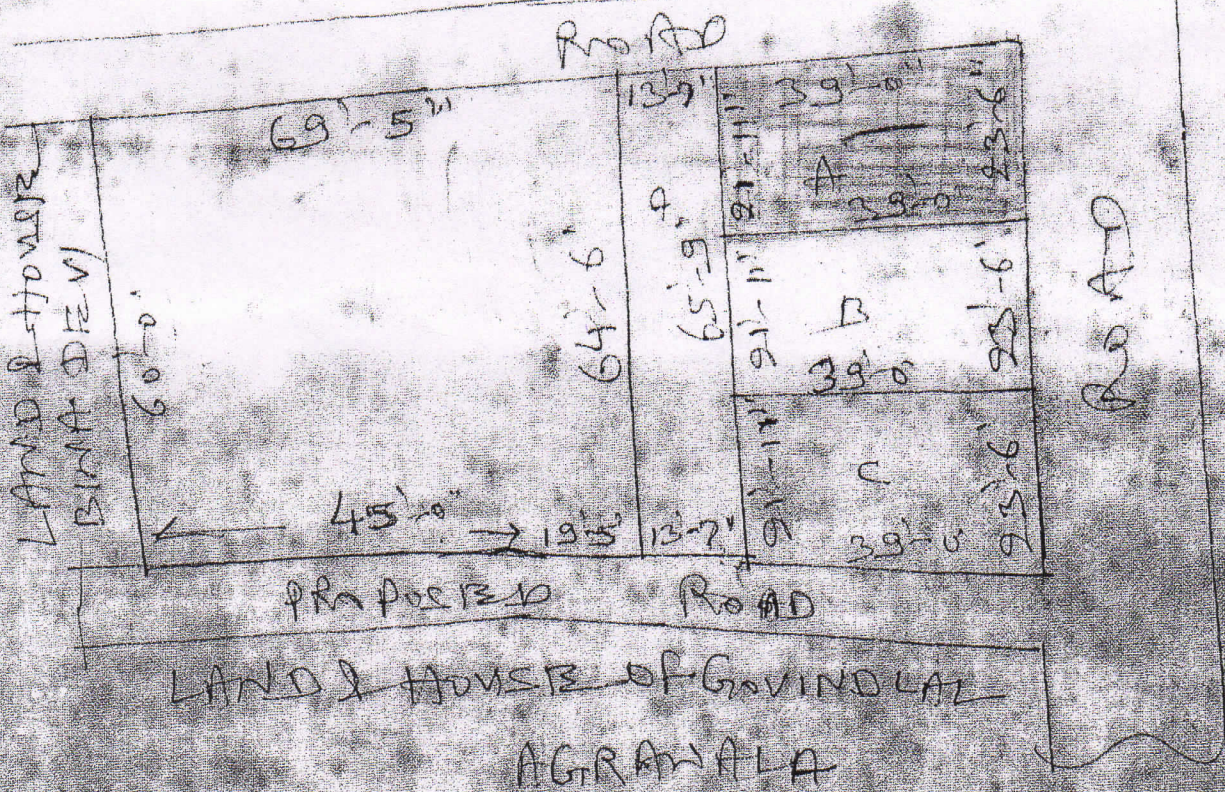 ROAD
69'-5"
13'-7"
39'-0"
21'-11"
A
23'-6"
39'-0"
LAND & HOUSE
BINA DEVI
60'-0"
64'-6"
65'-9"
21'-11"
B
23'-6"
39'-0"
ROAD
21'-11"
C
23'-6"
39'-0"
45'-0"
19'-5"
13'-7"
PROPOSED ROAD
LAND & HOUSE OF GOVINDLAL
AGRAWALA